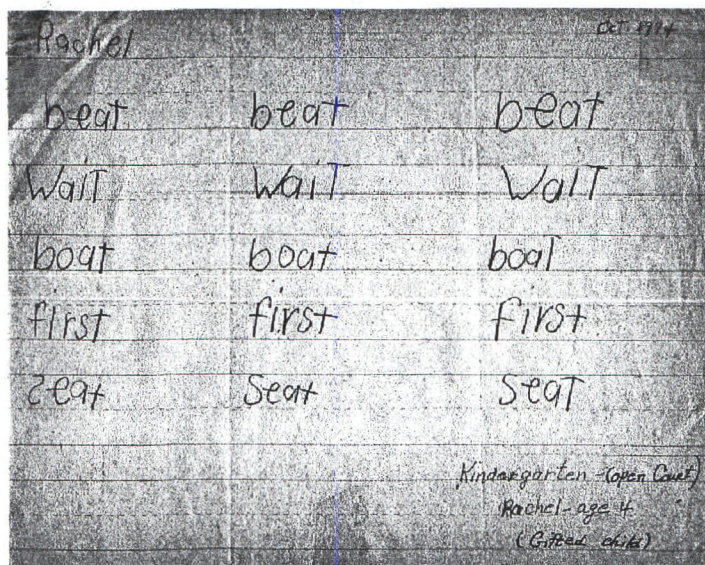 Rachel Oct. 1974
beat beat beat
Wait Wait Wait
boat boat boat
first first first
seat Seat Seat
Kindergarten - (open Court)
Rachel - age 4
(Gifted child)